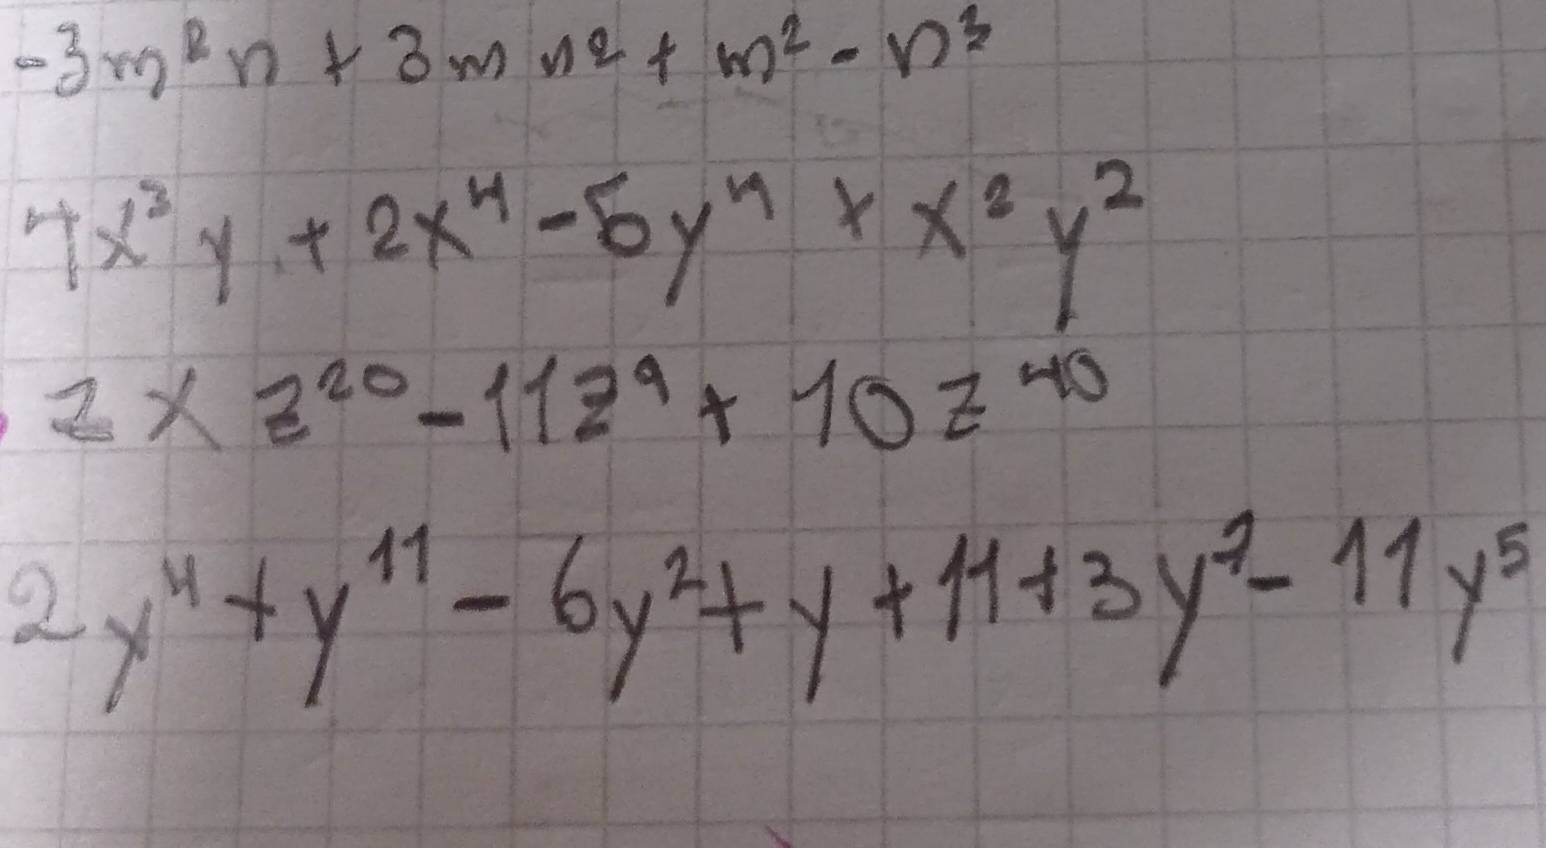 -3m²n + 3mn² + m² - n³
4x³y + 2x⁴ - 5y⁴ + x²y²
z x z²⁰ - 11z⁹ + 10z⁴⁰
2y⁴ + y¹¹ - 6y² + y + 11 + 3y⁷ - 11y⁵